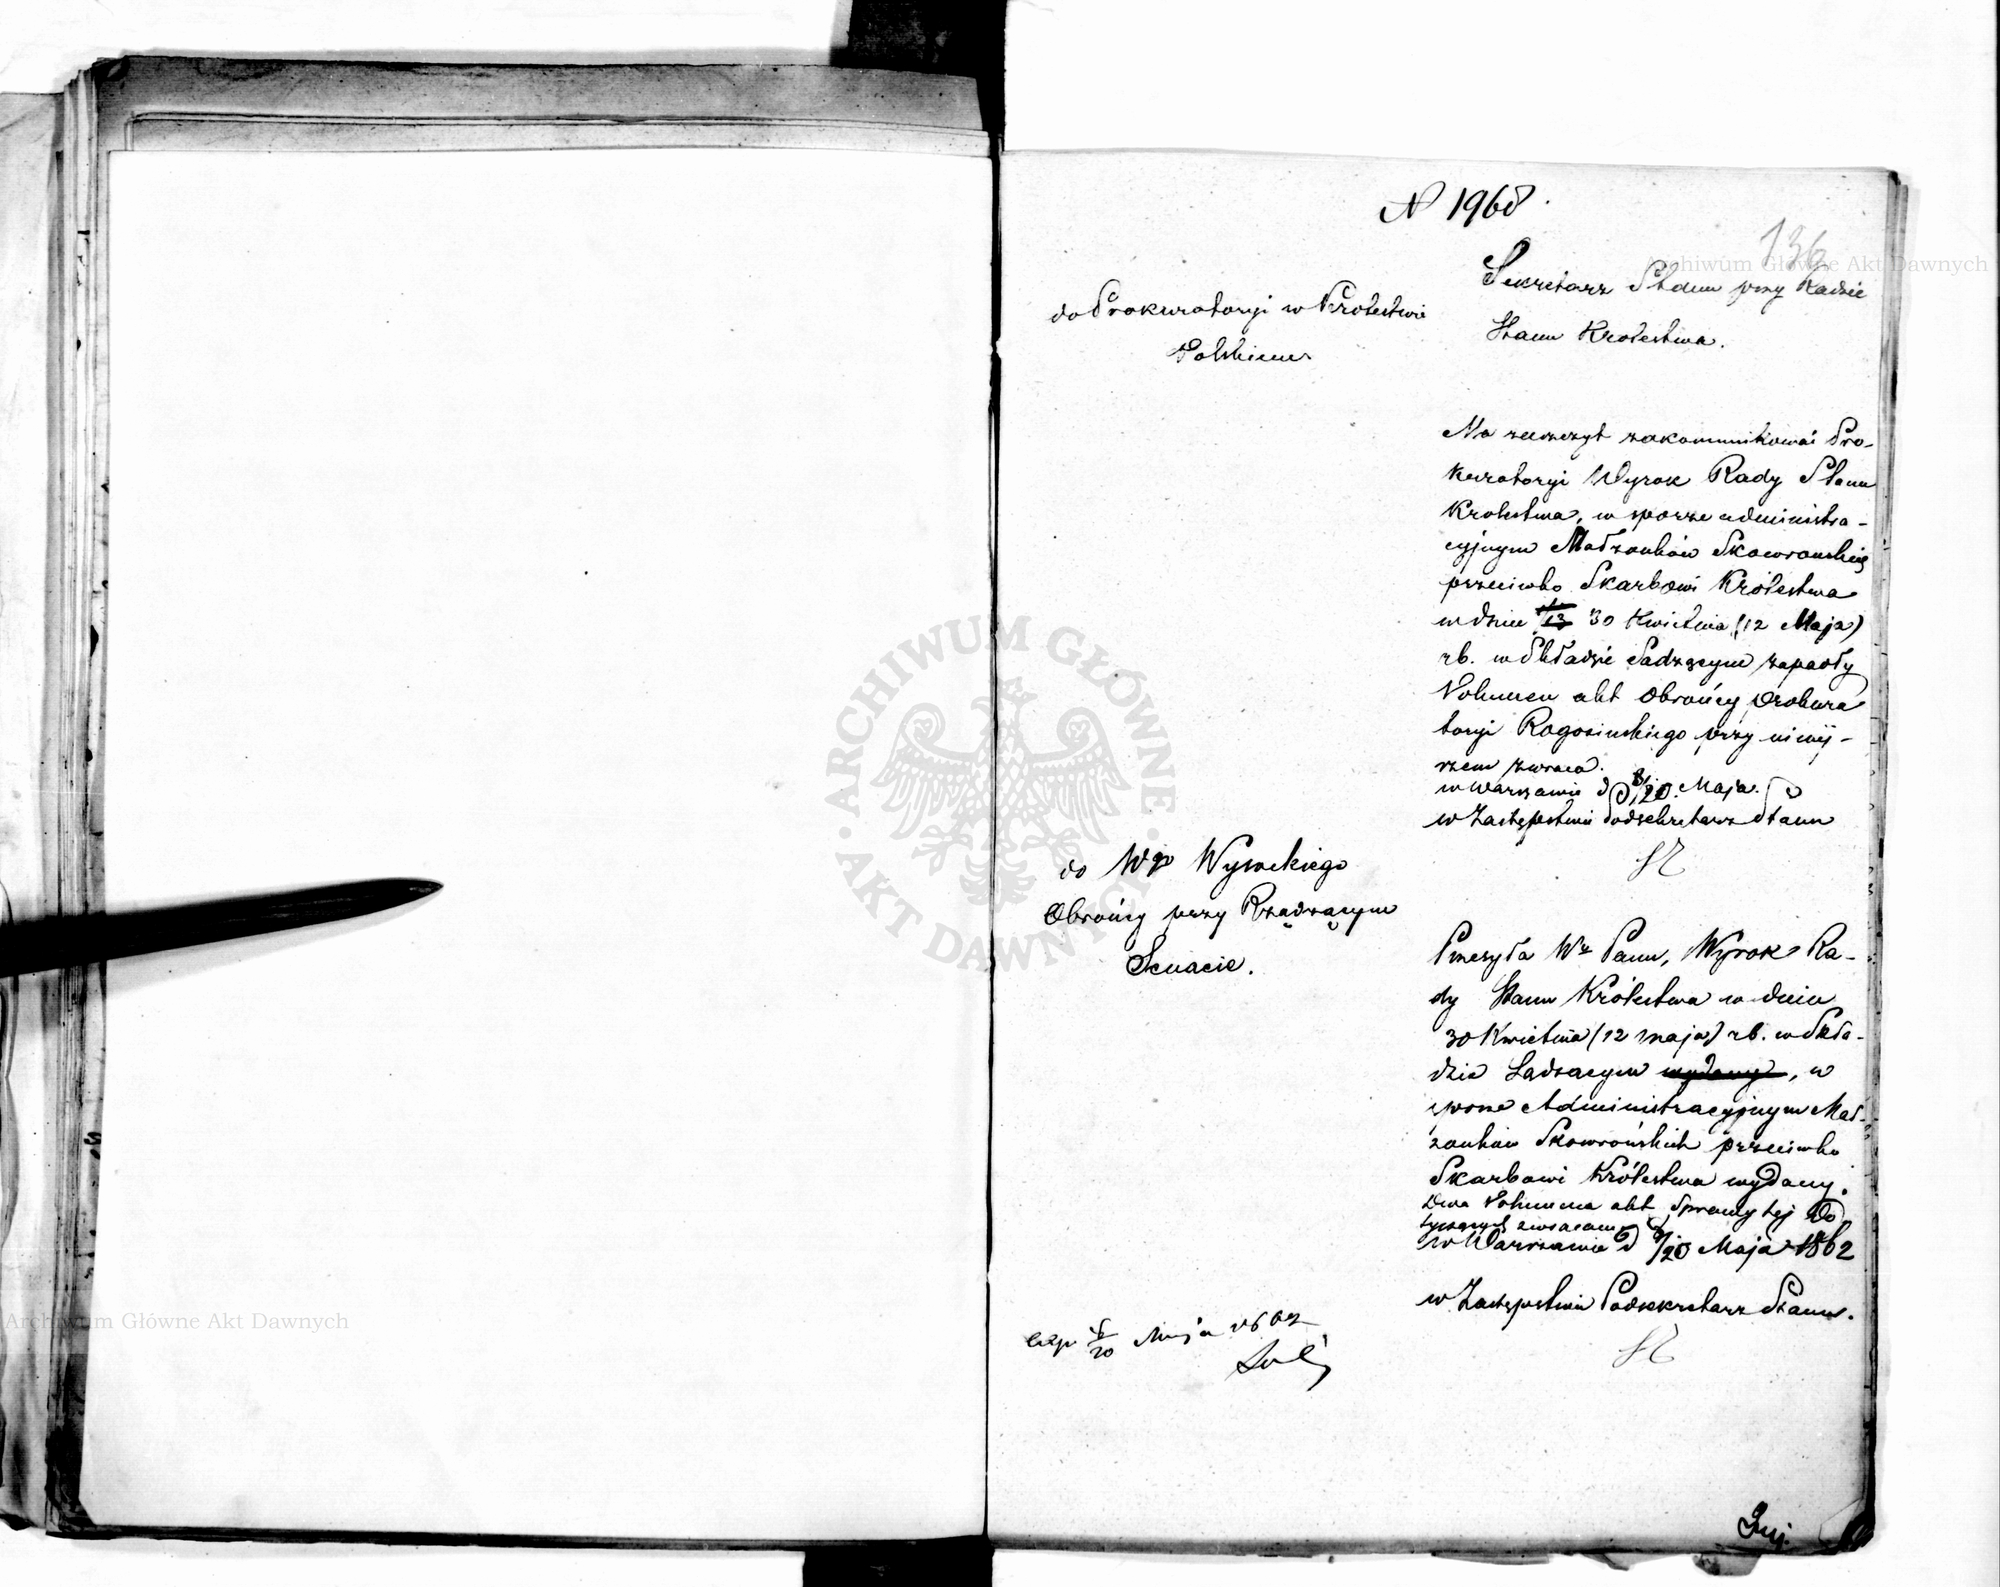 N 1968.
136
Sekretarz Stanu przy Radzie
Stanu Królestwa.
do Prokuratoryi w Królestwie
Polskiem
Ma zaszczyt zakommunikować Pro-
kuratoryi Wyrok Rady Stanu
Królestwa, w sporze administra-
cyjnym Małżonków Skowrońskich
przeciwko Skarbowi Królestwa
w dniu 30 Kwietnia (12 Maja)
rb. w Składzie Sądzącym zapadły
Volumen akt Obrońcy Prokura
toryi Rogozińskiego przy niniej-
szem zwraca.
w Warszawie d 8/20 Maja
w Zastępstwie Podsekretarz Stanu
do Wgo Wysockiego
Obrońcy przy Rządzącym
Senacie.
Przesyła Wu Panu, Wyrok Ra-
dy Stanu Królestwa w dniu
30 Kwietnia (12 maja) rb. w Skła-
dzie Sądzącym wydany, w
sporze Administracyjnym Mał-
żonków Skowrońskich przeciwko
Skarbowi Królestwa wydany.
Dwa Volumina akt Sprawy tej do
tyczących zwracam
w Warszawie d 8/20 Maja 1862
w Zastępstwie Podsekretarz Stanu.
exp 8/20 Maja 1862
Archiwum Główne Akt Dawnych
Archiwum Główne Akt Dawnych
· ARCHIWUM GŁÓWNE ·
AKT DAWNYCH